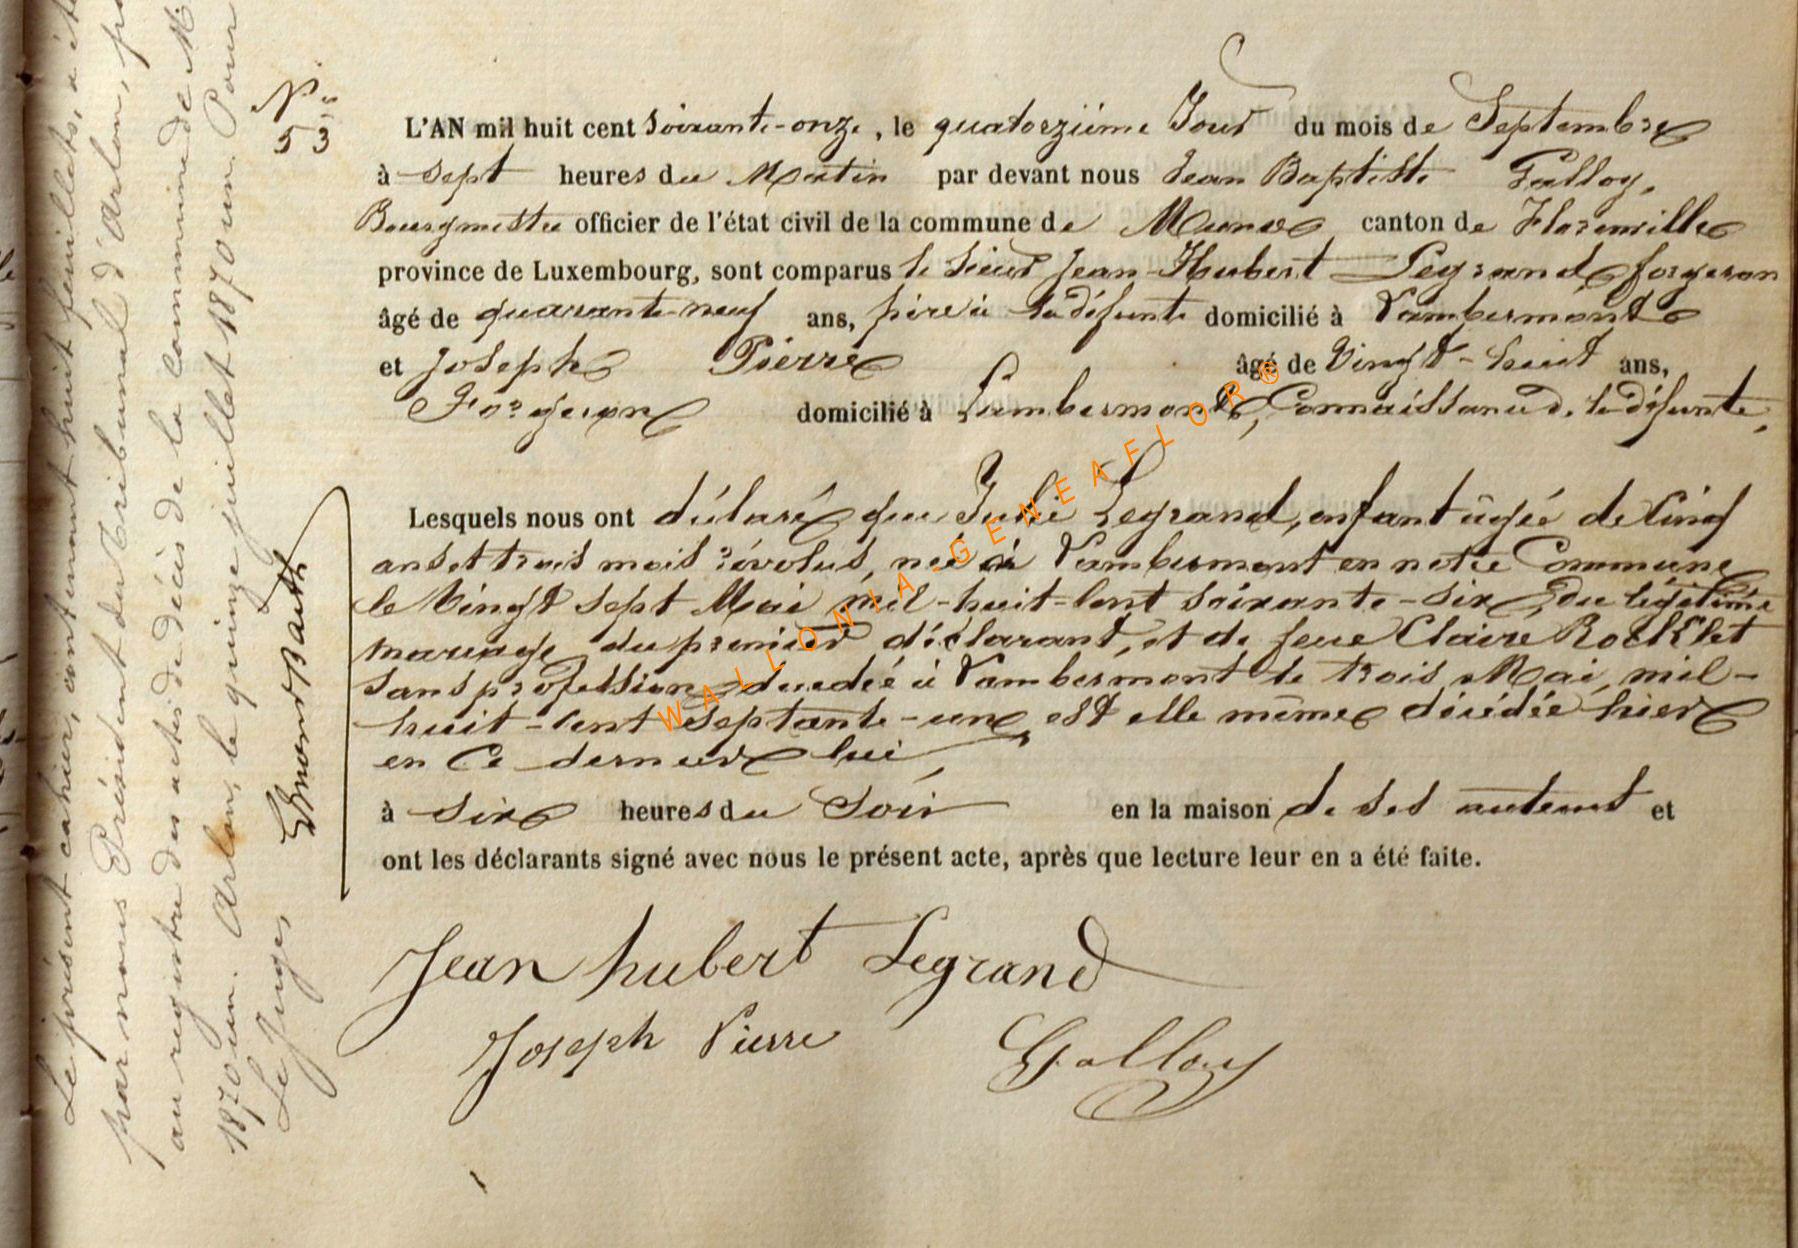 Nº
53
L'AN mil huit cent soixante-onze, le quatorzième Jour du mois de Septembre
à sept heures du Matin par devant nous Jean Baptiste Galloy,
Bourgmestre officier de l'état civil de la commune de Muno canton de Florenville
province de Luxembourg, sont comparus le sieur Jean-Hubert Legrand, forgeron
âgé de quarante-neuf ans, père à la défunte domicilié à Lambermont
et Joseph Pierre âgé de Vingt-huit ans,
Forgeron domicilié à Lambermont, Connaissance de la défunte,
Lesquels nous ont déclaré que Julie Legrand, enfant âgée de Cinq
ans et trois mois révolus, née à Lambermont en notre Commune
le Vingt sept Mai mil-huit-Cent soixante-six, du légitime
mariage du premier déclarant, et de feue Claire
sans profession, décédée à Lambermont le trois Mai, mil-
huit-Cent Septante-une, est elle même décédée hier
en Ce dernier lieu,
à six heures du Soir en la maison de ses auteurs et
ont les déclarants signé avec nous le présent acte, après que lecture leur en a été faite.
Jean hubert Legrand
Joseph Pierre
Galloy
Le présent cahier, contenant huit feuillets, a été
par nous Président du Tribunal d'Arlon, pa
au registre des actes de décès de la commune de M
1870 un. Arlon, le quinze juillet 1870 un. Pour
Le Juge,
WALLONIA-GENEAFLOR®